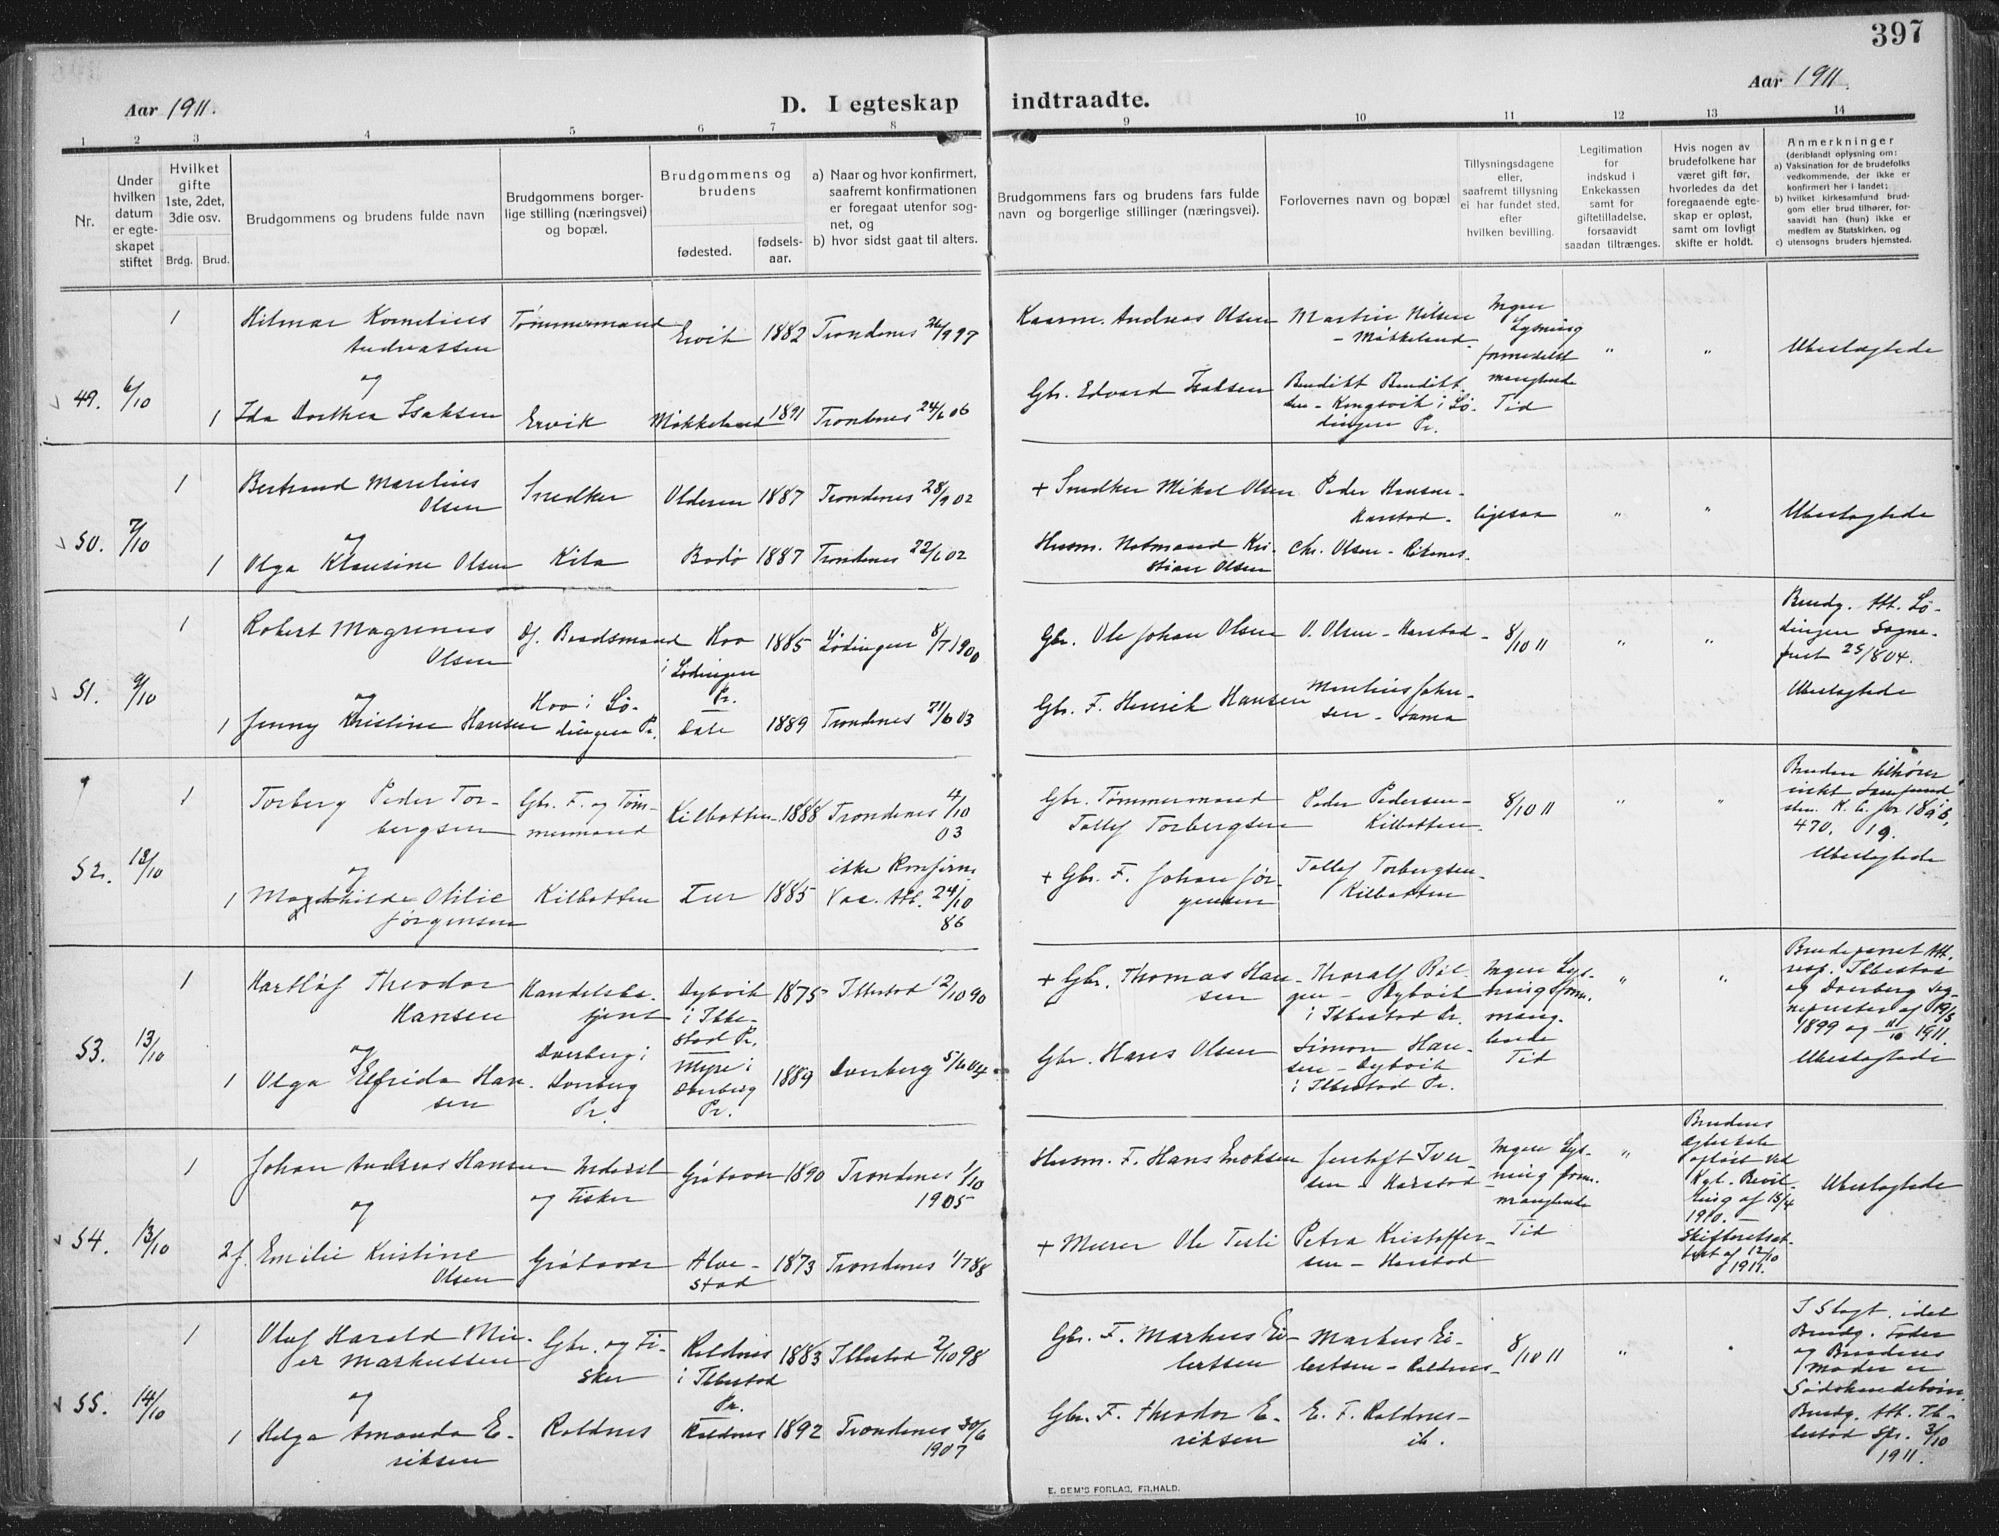 397
Aar 1911.
D. I egteskap indtraadte.
Aar 1911.
1 2 3 4 5 6 7 8 9 10 11 12 13 14
Nr.
Under hvilken datum er egteskapet stiftet
Hvilket gifte 1ste, 2det, 3die osv.
Brdg. Brud.
Brudgommens og brudens fulde navn
Brudgommens borgerlige stilling (næringsvei) og bopæl.
Brudgommens og brudens
fødested.
fødselsaar.
a) Naar og hvor konfirmert, saafremt konfirmationen er foregaat utenfor sognet, og
b) hvor sidst gaat til alters.
Brudgommens fars og brudens fars fulde navn og borgerlige stillinger (næringsvei).
Forlovernes navn og bopæl
Tillysningsdagene eller, saafremt tillysning ei har fundet sted, efter hvilken bevilling.
Legitimation for indskud i Enkekassen samt for giftetilladelse, forsaavidt saadan tiltrænges.
Hvis nogen av brudefolkene har været gift før, hvorledes da det foregaaende egteskap er opløst, samt om lovligt skifte er holdt.
Anmerkninger
(deriblandt oplysning om:
a) Vaksination for de brudefolks vedkommende, der ikke er konfirmert her i landet;
b) hvilket kirkesamfund brudgom eller brud tilhører, forsaavidt han (hun) ikke er medlem av Statskirken, og
c) utensogns bruders hjemsted.
49. 6/10
1 Hilmar Kornelius Andreassen
Tømmermand
Ervik 1882 Trondenes 26/9 97
Andreas Olsen
Martin Nilsen - Møkkeland
Ingen Lysning formedelst manglende Tid
" "
Ubeslægtede
og
1 Ida Dorthea Isaksen
Ervik
Møkkeland 1891 Trondenes 24/6 06
Gbr. Edvard Isaksen
Benedikt - Kongsvik i Lødingen Pr.
50. 7/10
1 Bertrand Marelius Olsen
Snedker
Olderen 1887 Trondenes 28/9 02
+ Snedker Mikal Olsen
Peder Hansen - Harstad.
ligesaa
" "
Ubeslægtede
og
1 Olga Klausine Olsen
Kila
Bodø 1887 Trondenes 22/6 02
Husm. Notmand Kristian Olsen
Chr. Olsen
51. 9/10
1 Robert Magnus Olsen
Df. Baadsmand
Hoo i Lødingen Pr. 1885 Lødingen 8/7 1900
Gbr. Ole Johan Olsen
O. Olsen - Harstad
8/10 11
" "
Brudg. Att. Lødingen Sogneprest 25/8 04.
Ubeslægtede
og
1 Jenny Kristine Hansen
Hoo i Lødingen Pr.
Dale 1889 Trondenes 21/6 03
Gbr. F. Henrik Hansen
Johansen - Sama
52. 12/10
1 Torberg Peder Torbergsen
Gbr. F. og Tømmermand
Kilbotten 1888 Trondenes 4/10 03
Gbr. Tømmermand Tollef Torbergsen
Peder Pedersen - Kilbotten
8/10 11
" "
Bruden tilhører
470, 19.
Ubeslægtede
og
1 Magnhilde Otilie Jørgensen
Kilbotten
1885 ikke Konfirm. Vac. Att. 24/10 86
+ Gbr. F. Johan Jørgensen
Tollef Torbergsen - Kilbotten
53. 13/10
1 Theodor Hansen
Handelsbetjent
Dybvik i Ibbestad Pr. 1875 Ibbestad 12/10 90
+ Gbr. Thomas Hansen
Thoralf - Dybvik i Ibbestad Pr.
Ingen Lysning form. manglende Tid
" "
Brudeparret Att. resp. Ibbestad og Dverberg Sogneprester af 19/5 1899 og 11/10 1911.
Ubeslægtede
og
1 Olga Elfrida Hansen
Dverberg i Dverberg Pr.
Myre i Dverberg Pr. 1889 Dverberg 5/6 04
Gbr. Hans Olsen
Simon Hansen - Dybvik i Ibbestad Pr.
54. 13/10
1 Johan Andreas Hansen
Inderst og Fisker
Grøtavær 1890 Trondenes 1/10 1905
Husm. F. Hans Enoksen
Jentoft Iversen - Harstad
Ingen Lysning form. manglende Tid
"
Brudens Egteskab opløst ved Kgl. Bevilling af 15/4 1910. - Skifteretsattest af 12/10 1911.
Ubeslægtede
og
2 f. Emilie Kristine Olsen
Grøtavær
Alvestad 1873 Trondenes 1/7 88
+ Murer Ole Tesli
Petra Kristoffersen - Harstad
55. 14/10
1 Olaf Harald Meier Markussen
Gbr. og Fisker
Roldnes i Ibbestad Pr. 1883 Ibbestad 2/10 98
Gbr. F. Markus Eilertsen
Markus Eilertsen - Roldnes
8/10 11
" "
I Slægt. idet Brudg. Fader og Brudens Moder er Sødskendebørn.
Brudg. Att. Ibbestad Spr. 3/10 1911.
og
1 Helga Amanda Eriksen
Roldnes
Roldnes 1892 Trondenes 30/6 1907
Gbr. F. Theodor Eriksen
E. F. Roldnes - ib.
E. SEM'S FORLAG, FR.HALD.